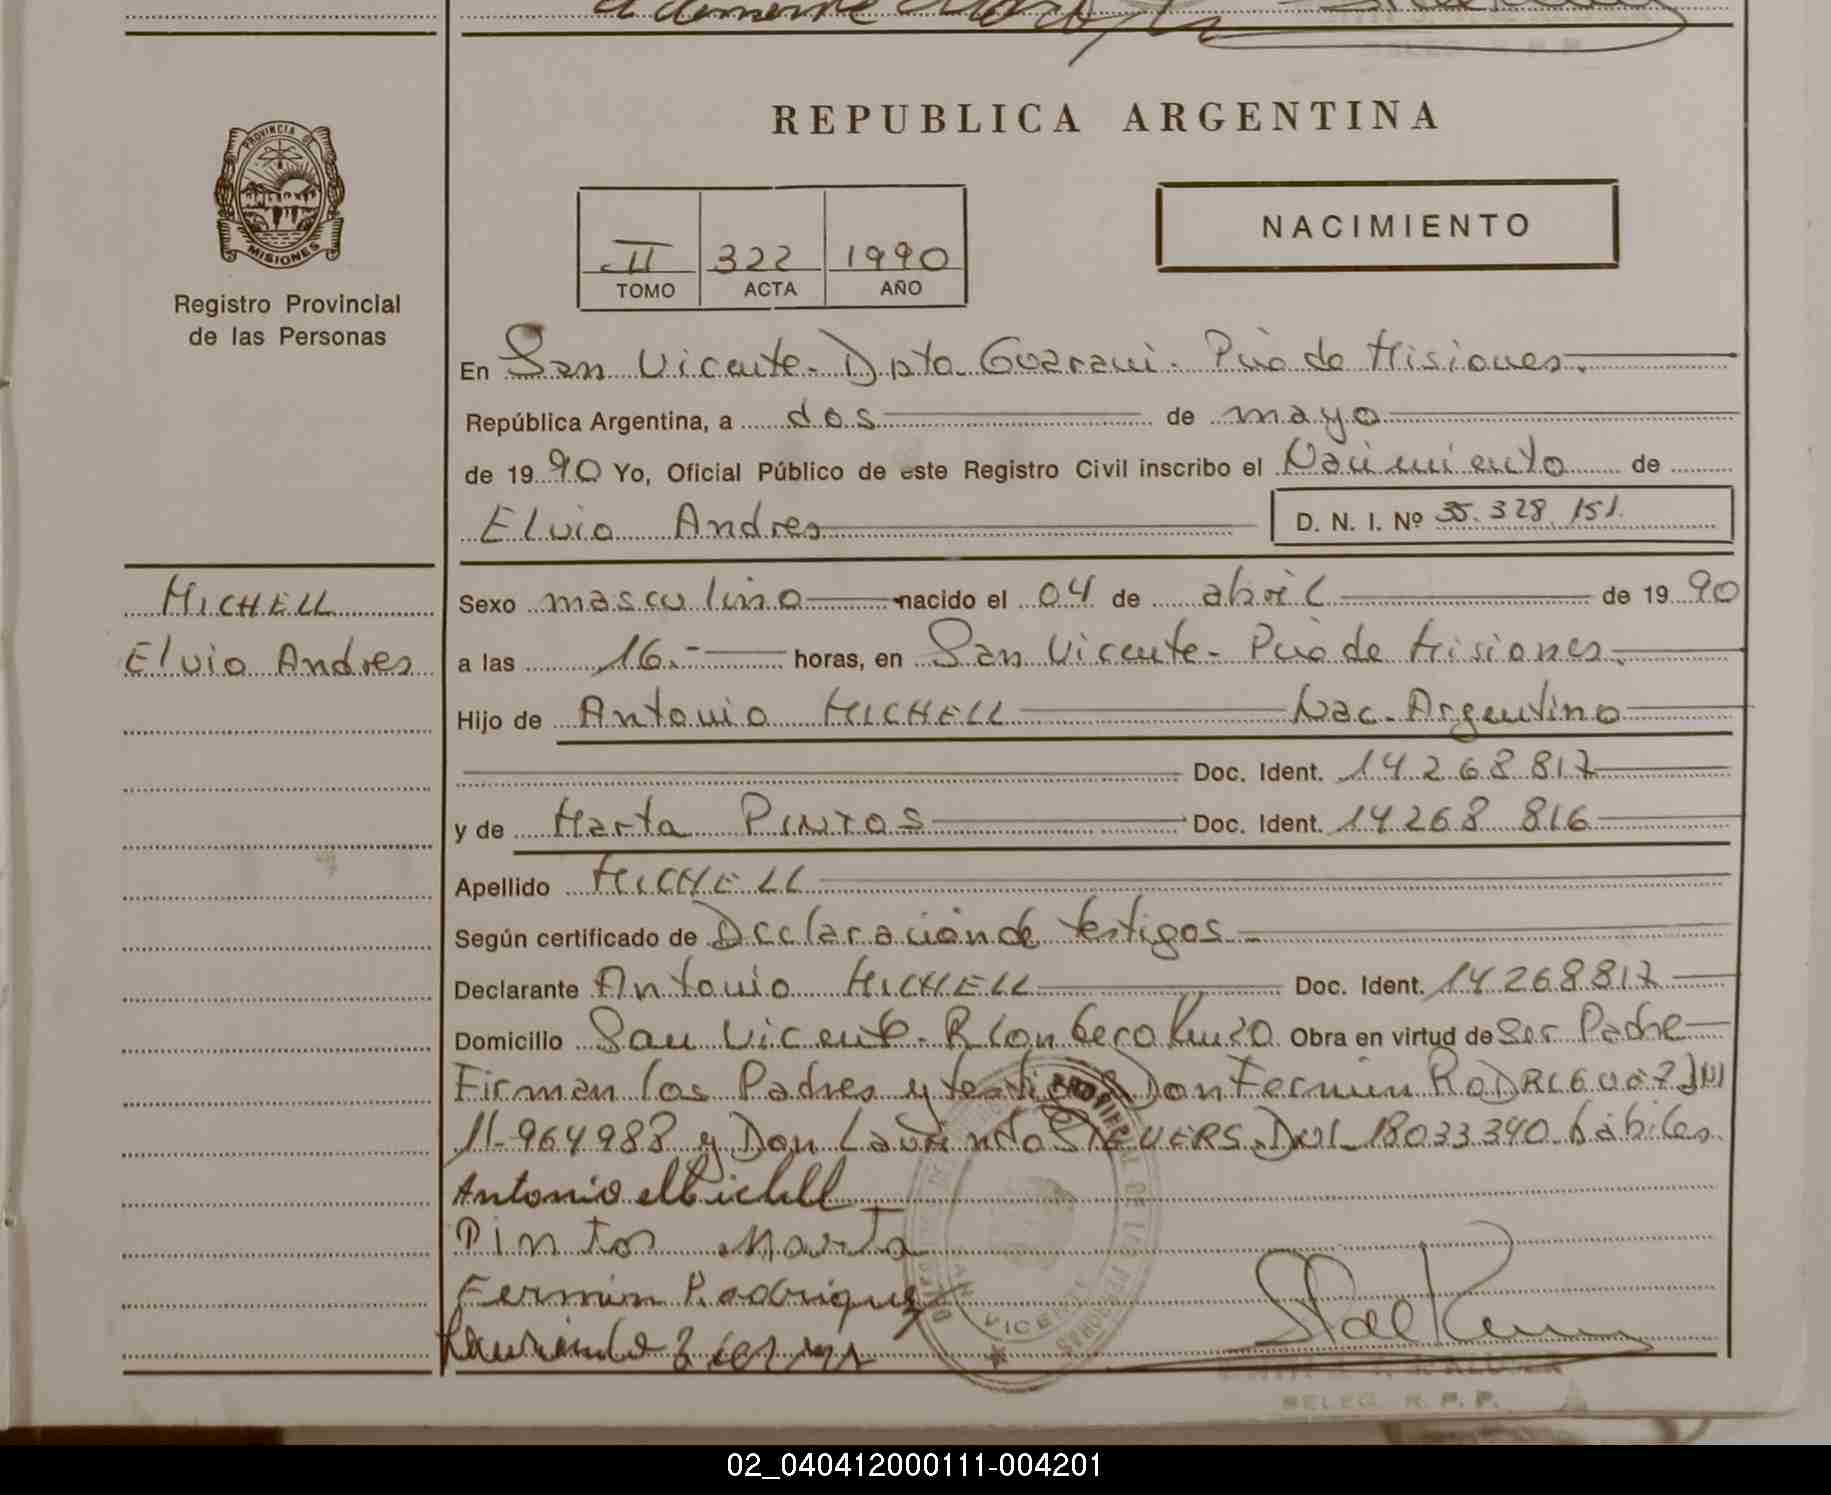 REPUBLICA ARGENTINA
PROVINCIA DE
MISIONES
Registro Provincial
de las Personas
II 322 1990
TOMO ACTA AÑO
NACIMIENTO
En San Vicente - Dpto Guarani - Pcia de Misiones.
República Argentina, a dos de mayo
de 1990 Yo, Oficial Público de este Registro Civil inscribo el Nacimiento de
Elvio Andres D. N. I. Nº 35.328.151.
MICHELL
Elvio Andres
Sexo masculino nacido el 04 de abril de 1990
a las 16.- horas, en San Vicente - Pcia de Misiones.
Hijo de Antonio MICHELL Nac. Argentino
Doc. Ident. 14268817
y de Marta PINTOS Doc. Ident. 14268816
Apellido MICHELL
Según certificado de Declaración de testigos
Declarante Antonio MICHELL Doc. Ident. 14268817
Domicilio San Vicente - Obra en virtud de Ser Padre
Firman los Padres y testigos Don Fermin RODRIGUEZ DNI
11-964988 y Don Laurindo DNI 18033340 hábiles
Antonio Michell
Pintos Marta
Fermin Rodriguez
Laurindo
VICENTE
DELEG. R. P. P.
02_040412000111-004201